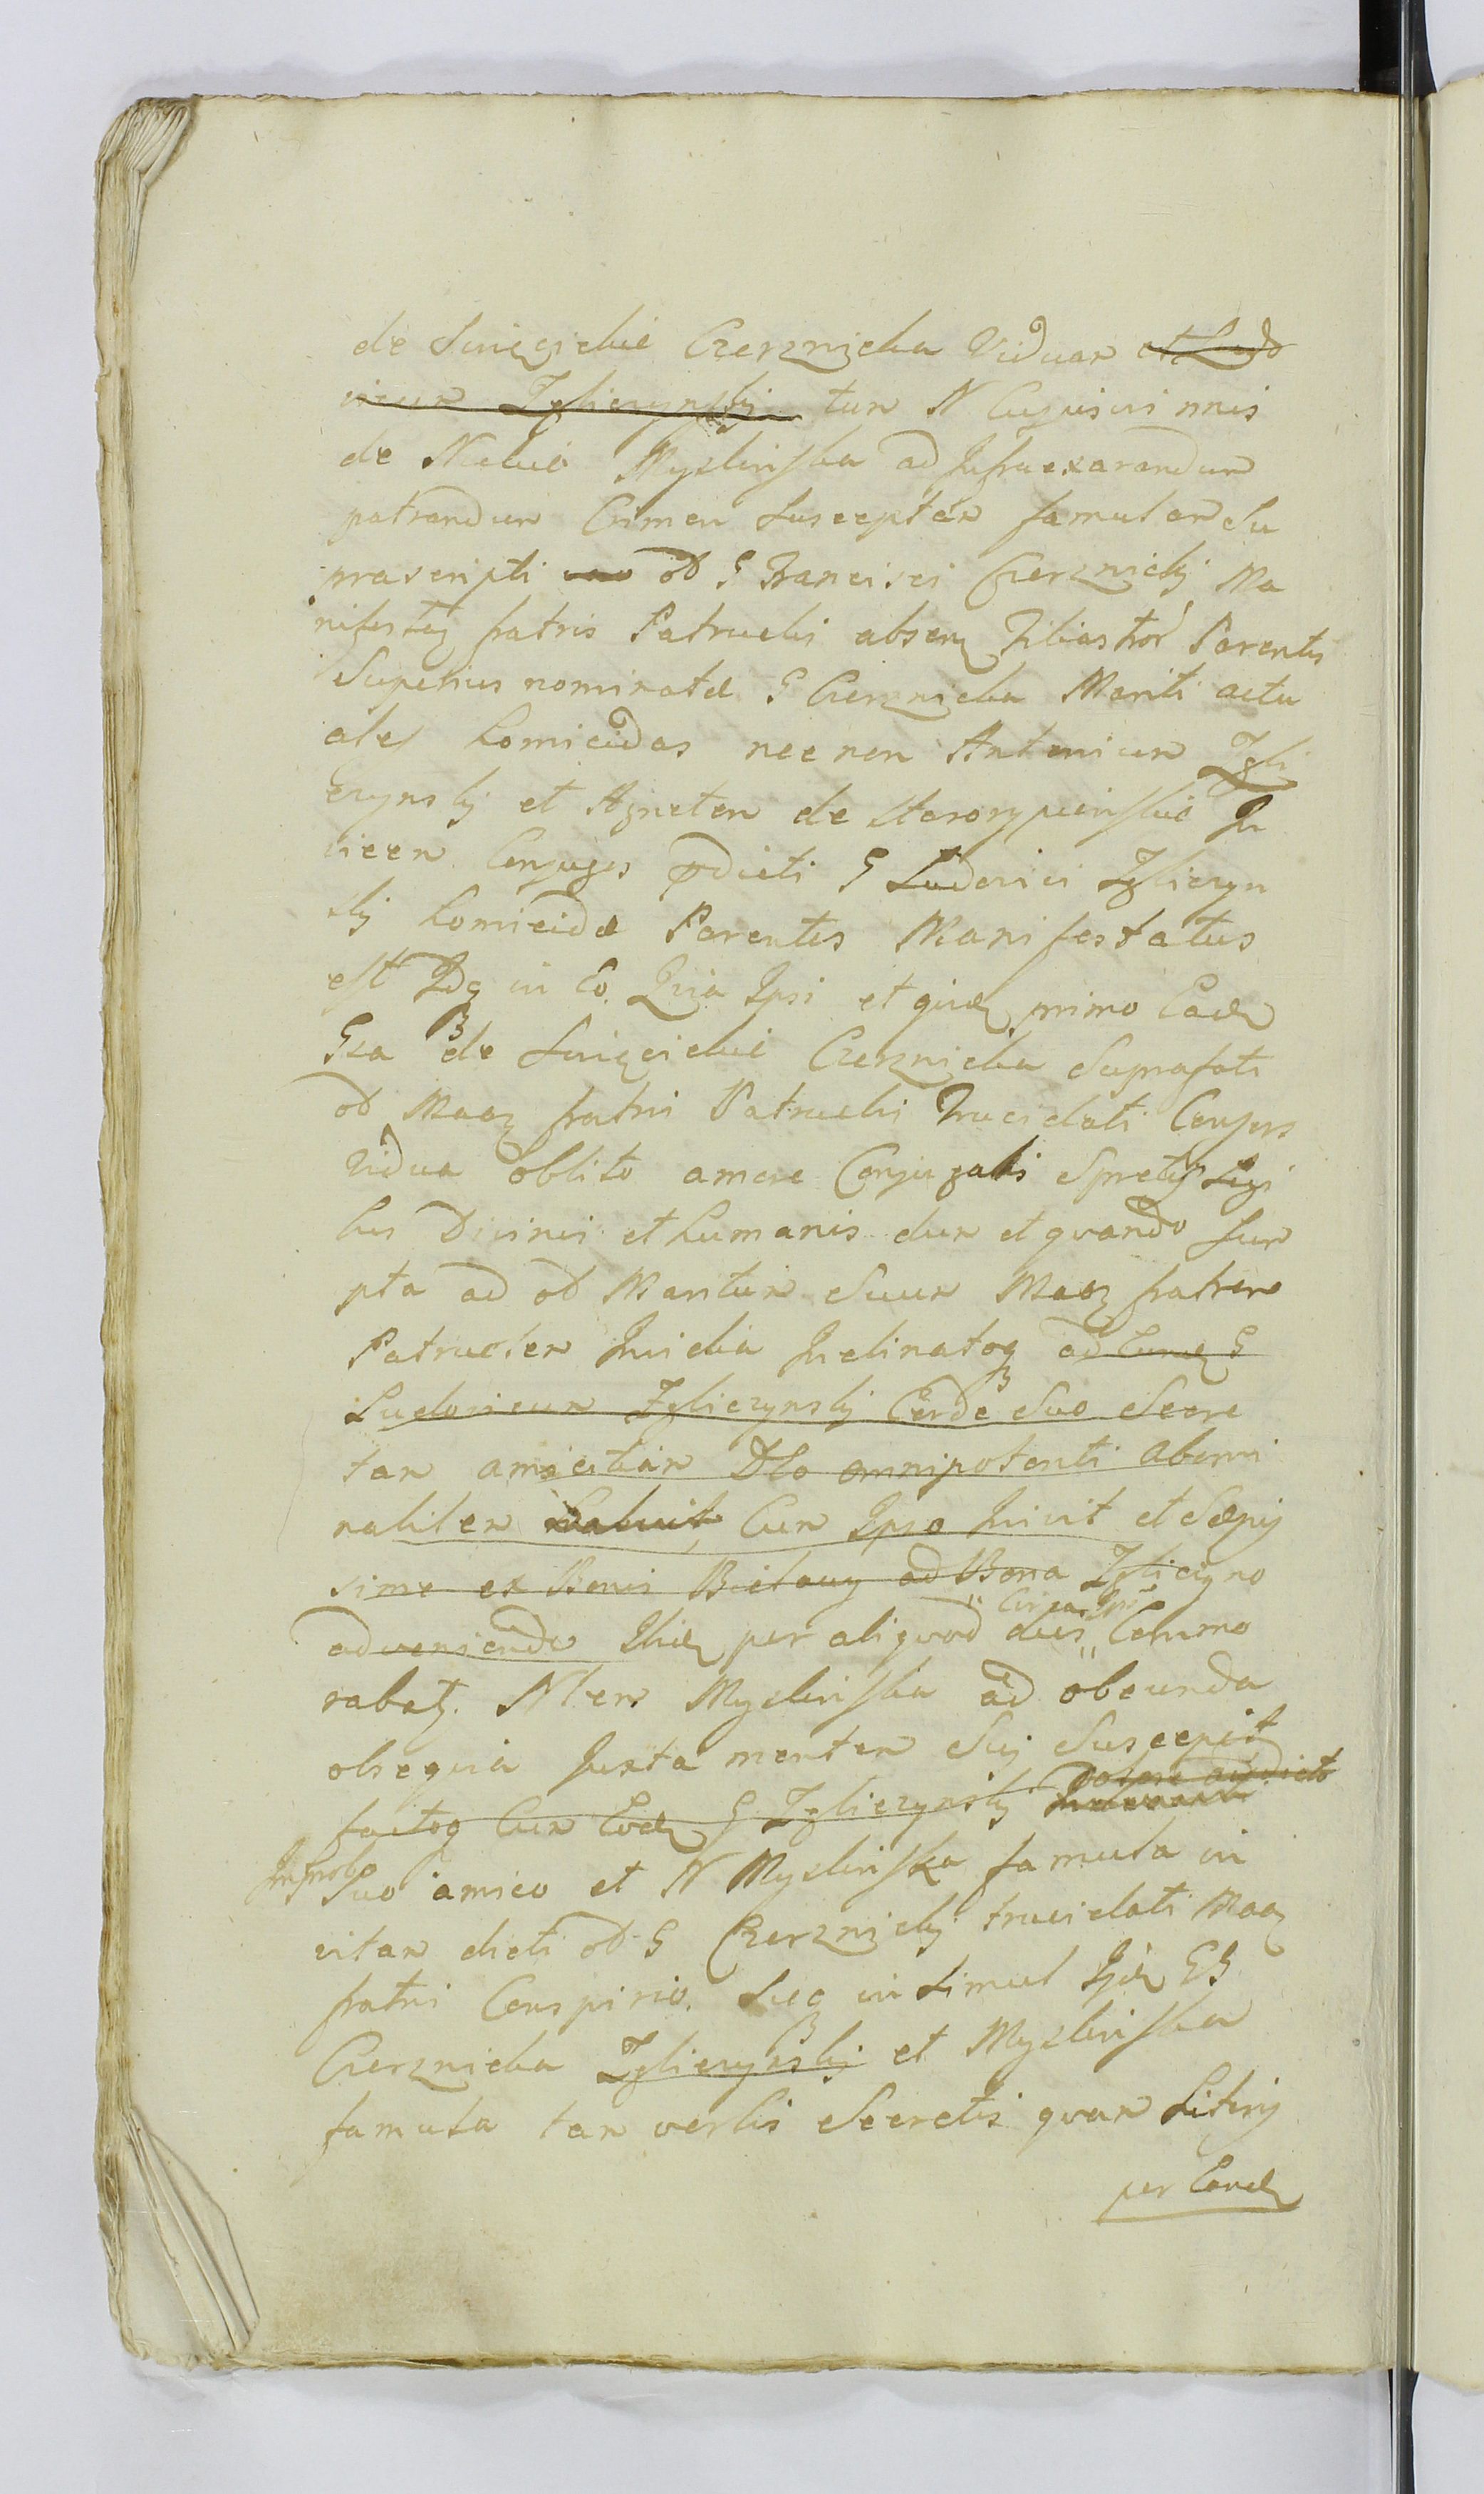 de Swięcickie Czerznicka Viduam et Ludo
vicum Zgliczynskj tum N Cujusvi nnis
de Myslinska ad Infra exarandum
patrandum Crimen Susceptam famulam Su
prascripti olt G Francisci Czerznickj Ma
nifesttis fratris Patruelis absentis Parentis
Superius nominatæ G Czerznicka Mariti actu
ales homicidas nec non Antonium Zgli
czynskj et Agnetem de Starorypinskie In
vicem Conjuges pdicti G Ludovici Zgliczyn
skj homicidæ Parentes Manifestatus
est Idq in Eo Quia Ipsi et quidem primo Eadem
Gsa de Swięcickie Czerznicka Suprafati
olt Maoz fratri Patrueli Trucidati Consors
Vidua oblito amore Conjugali Spretisq Legi
bus Divinis et humanis dum et quando Sum
pta ad olt Maritum Suum Maoz fratrem
Patruelem Invidia Inclinatoq ad Eundem G
Ludovicum Zgliczynskj Corde Suo Secre
tam amicitiam Dto omnipotenti abomi
nabilem habuit Cum Ipso Inivit et Sæpis
sime ex Bonis Bielawy ad Bona Zgliczyno
adveniendo Ibidem per aliquod dies "Circa Ipm" Commo
rabatq. Nlem Myslinska ad obeunda
obsequia Juxta mentem Suj Suscepit
factoq Cum Eodem G Zgliczynskj
Improbo Suo amico et N Myslinska famula in
vitam dicti olt G Czerznickj trucidati Maoz
fratri Conspirio. Sicq in Simul Ijdem GG
Czerznicka Zgliczynskj et Myslinska
famula tam verbis Secretis quam Litteris
per Eand